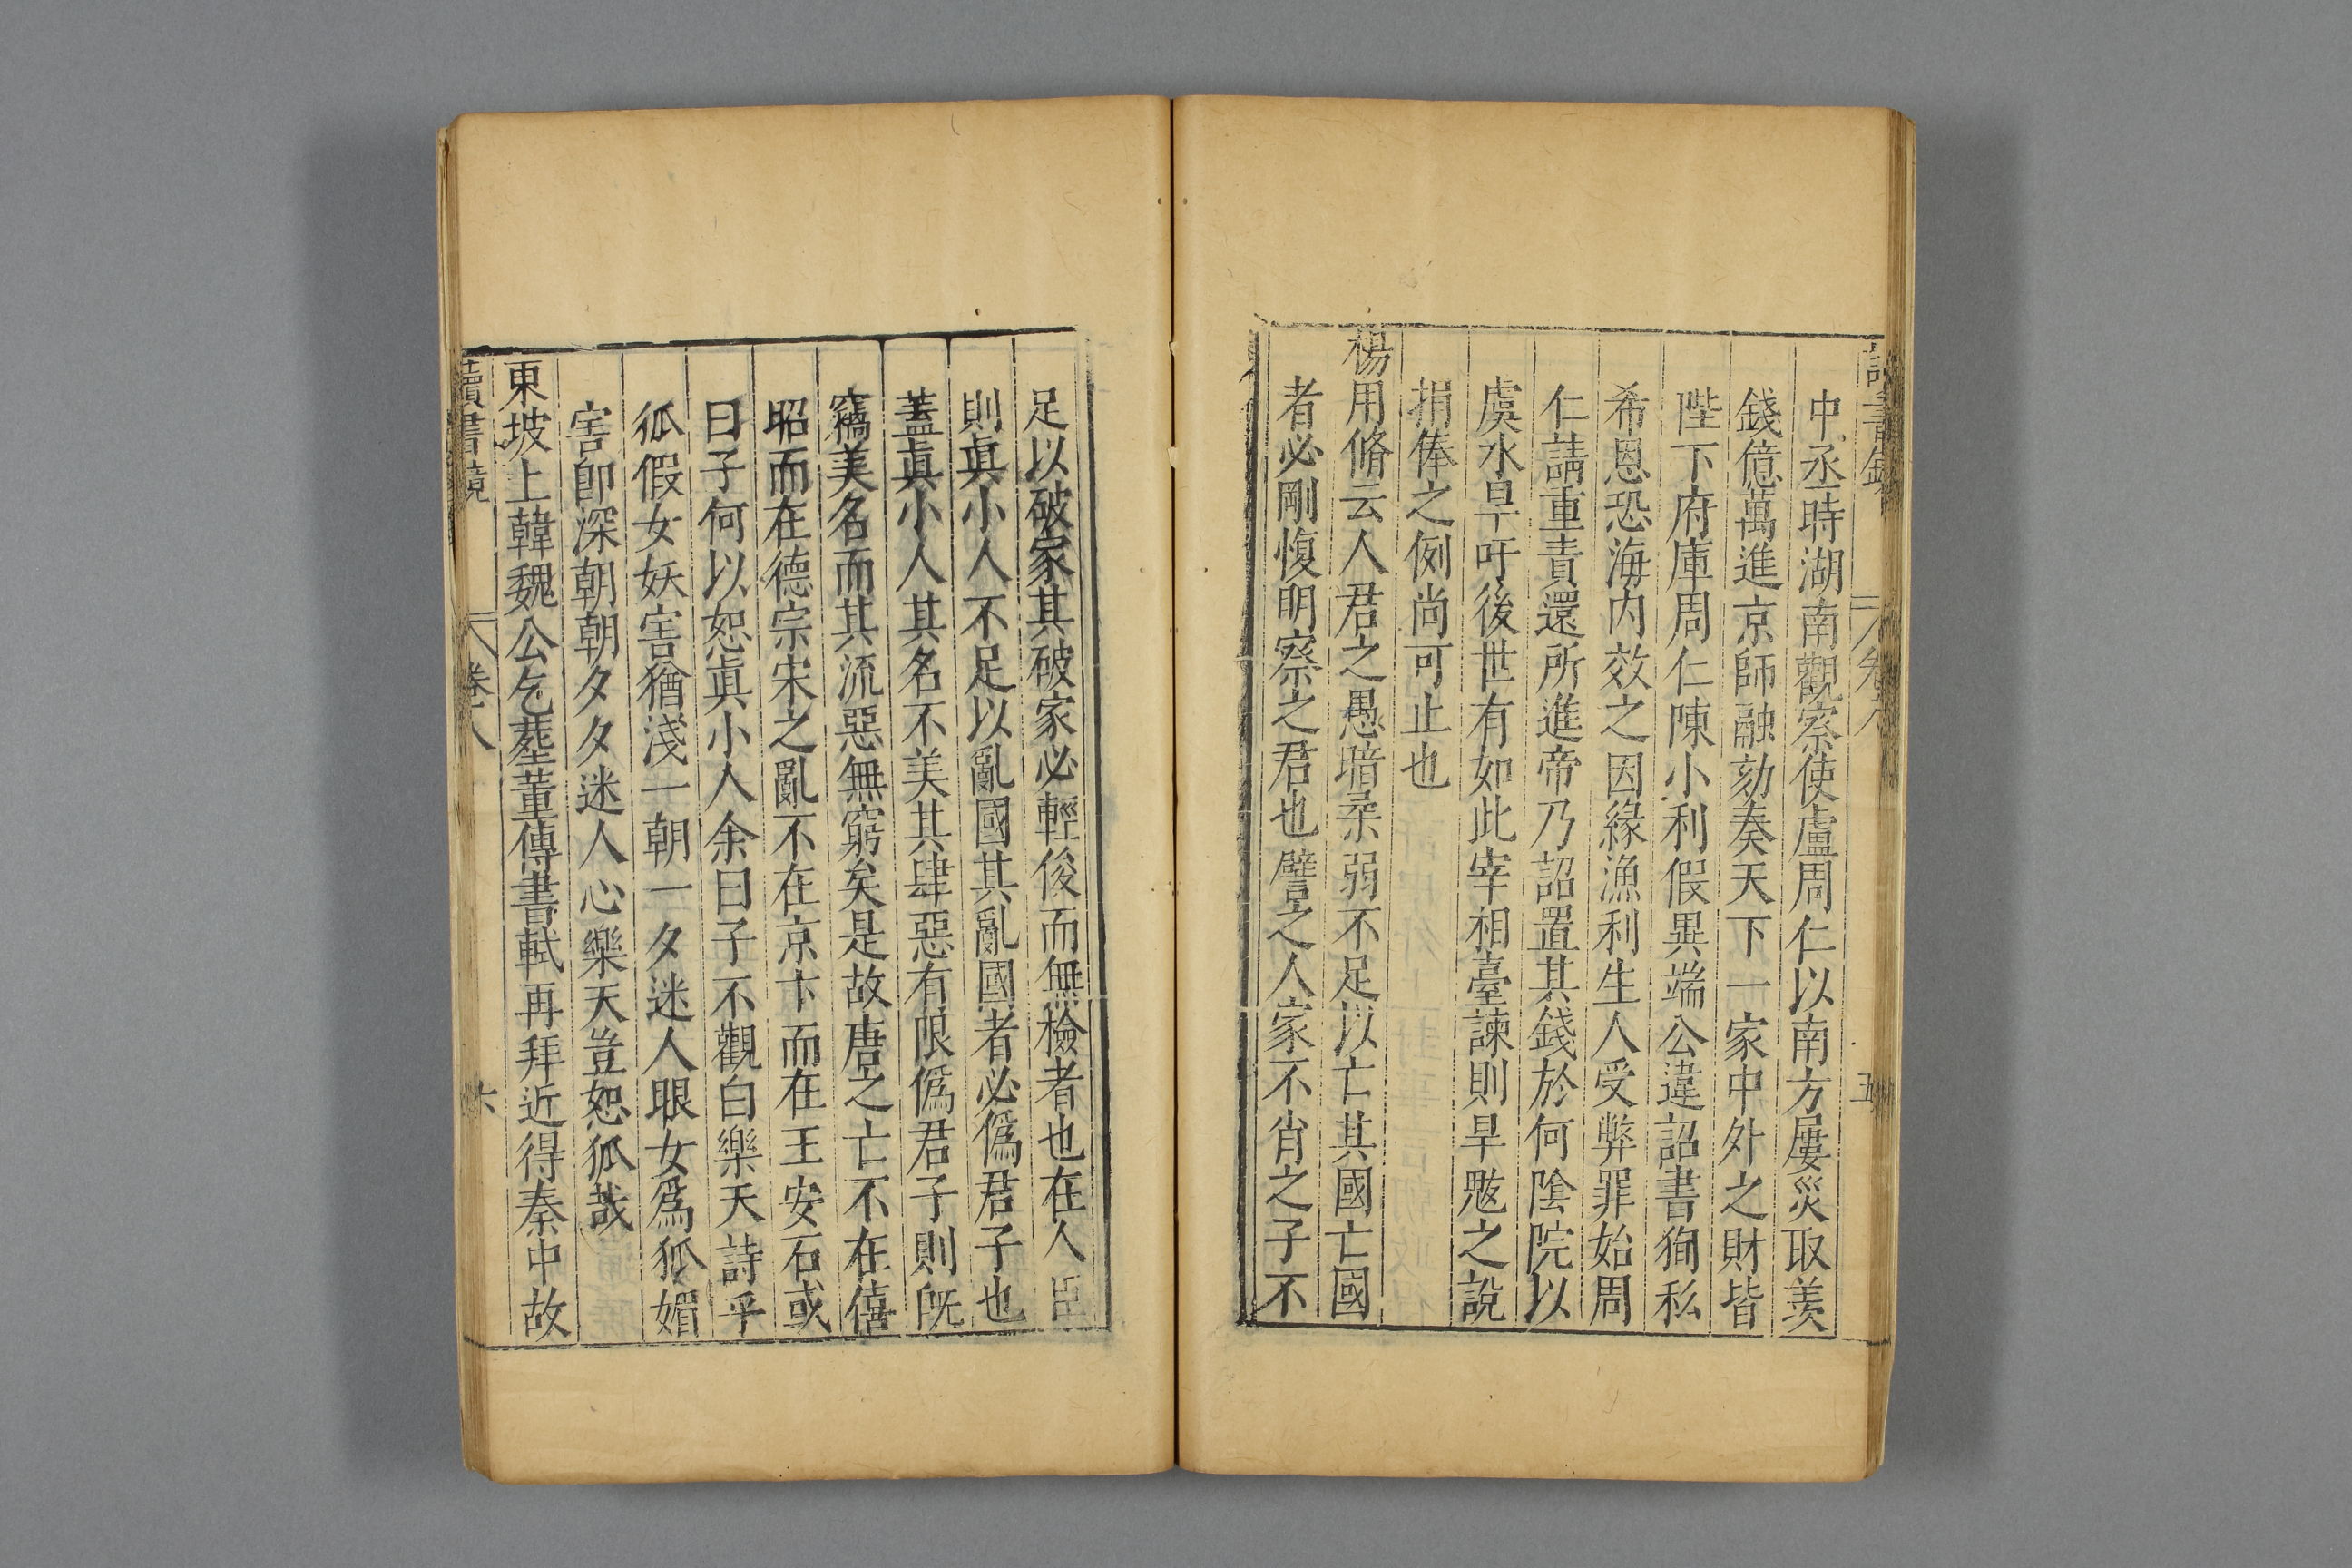 讀書鏡 卷八 五
中丞時湖南觀察使盧周仁以南方屢災取羨
錢億萬進京師融劾奏天下一家中外之財皆
陛下府庫周仁陳小利假異端公違詔書徇私
希恩恐海内效之因緣漁利生人受弊罪始周
仁請重責還所進帝乃詔置其錢於何陰院以
虞水旱吁後世有如此宰相臺諫則旱魃之說
捐俸之例尚可止也
楊用脩云人君之愚暗柔弱不足以亡其國亡國
者必剛愎明察之君也譬之人家不肖之子不
足以破家其破家必輕俊而無檢者也在人臣
則真小人不足以亂國其亂國者必僞君子也
蓋真小人其名不美其肆惡有限僞君子則旣
竊美名而其流惡無窮矣是故唐之亡不在僖
昭而在德宗宋之亂不在京卞而在王安石或
曰子何以恕真小人余曰子不觀白樂天詩乎
狐假女妖害猶淺一朝一夕迷人眼女爲狐媚
害卽深朝朝夕夕迷人心樂天豈恕狐哉
東坡上韓魏公乞葬董傳書軾再拜近得秦中故
讀書鏡 卷八 六